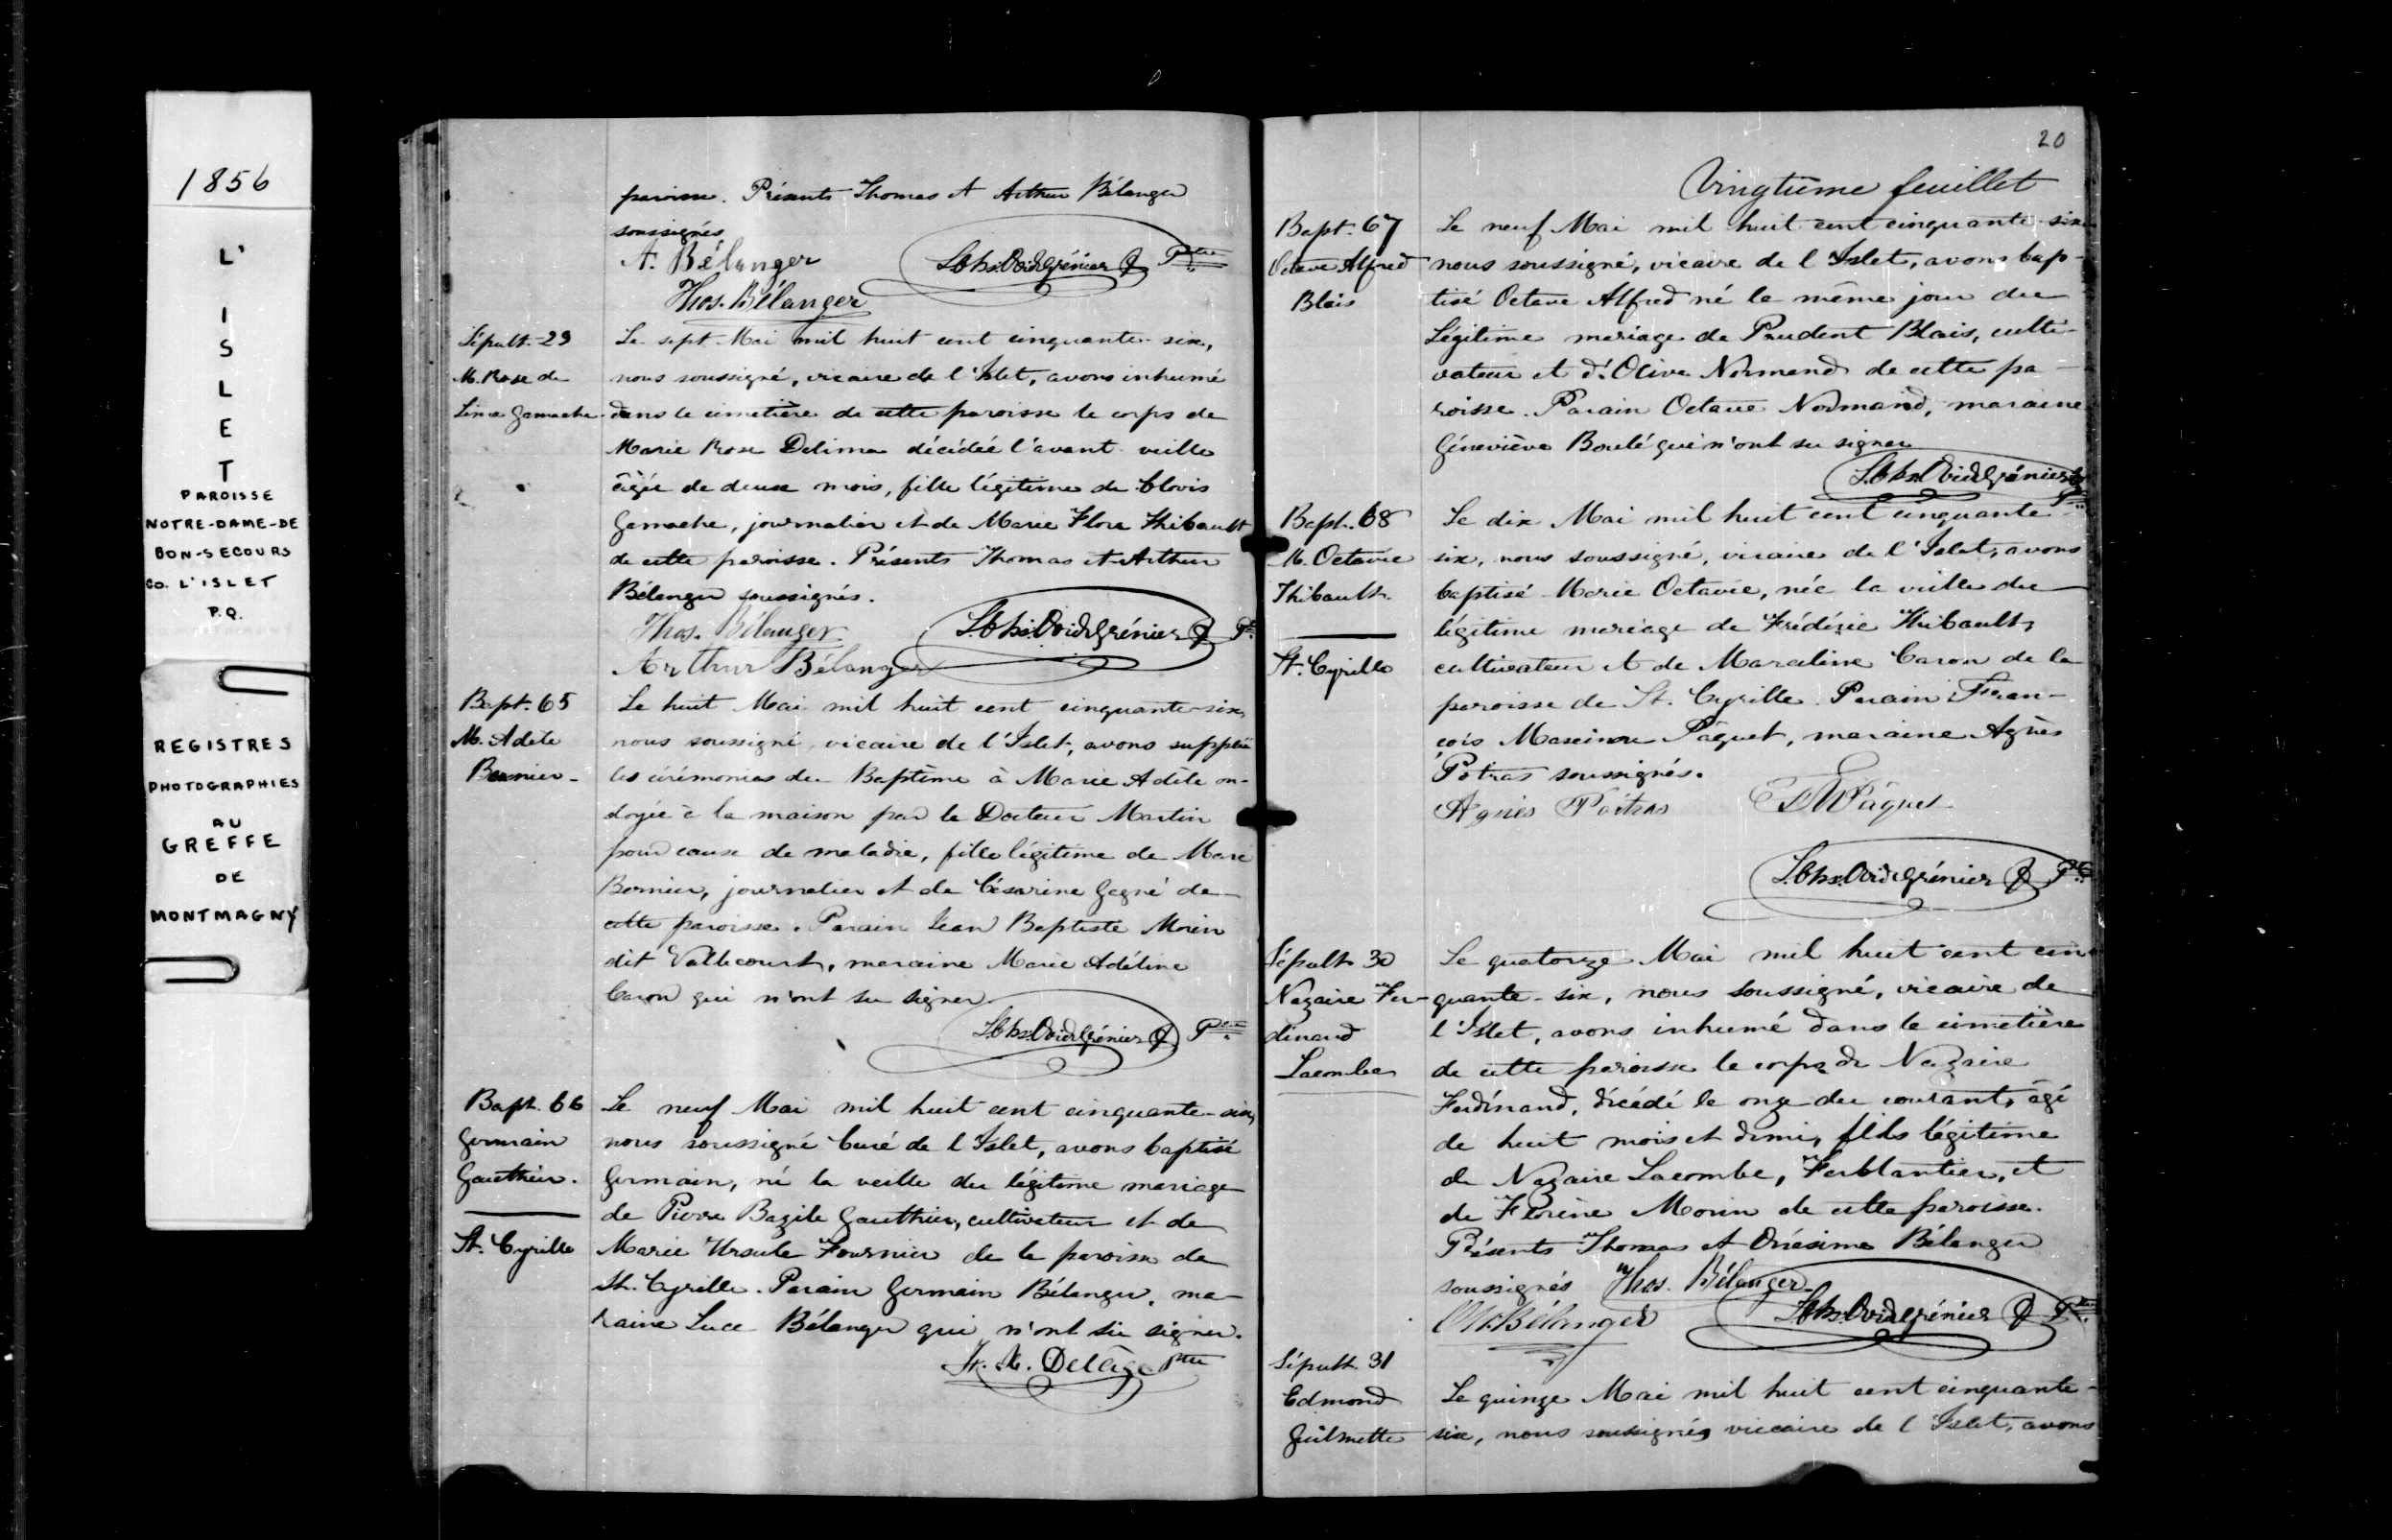 1856
L'
I
S
L
E
T
PAROISSE
NOTRE-DAME-DE
BON-SECOURS
CO. L'ISLET
P.Q.
REGISTRES
PHOTOGRAPHIES
AU
GREFFE
DE
MONTMAGNY
paroisse. Présents Thomas et Arthur Bélanger
soussignés
A. Bélanger
Thos. Bélanger
Ls. Chs. Ovide Grénier Ptre
Sépult. 29
M. Rose de
Lima Gamache
Le sept Mai mil huit cent cinquante-six,
nous soussigné, vicaire de l'Islet, avons inhumé
dans le cimetière de cette paroisse le corps de
Marie Rose Delima décédée l'avant veille
âgée de deux mois, fille légitime de Clovis
Gamache, journalier et de Marie Flore Thibault
de cette paroisse. Présents Thomas et Arthur
Bélanger soussignés.
Thos. Bélanger
Arthur Bélanger
Ls. Chs. Ovide Grénier Ptre
Bapt. 65
M. Adele
Bernier
Le huit Mai mil huit cent cinquante-six,
nous soussigné, vicaire de l'Islet, avons supplée
les cérémonies du Baptême à Marie Adèle on-
doyée à la maison par le Docteur Martin
pour cause de maladie, fille légitime de Marc
Bernier, journalier et de Césarine Gagné de
cette paroisse. Parain Jean Baptiste Morin
dit Vallecourt, maraine Marie Adéline
Caron qui n'ont su signer.
Ls. Chs. Ovide Grénier Ptre
Bapt. 66
Germain
Gauthier.
St. Cyrille
Le neuf Mai mil huit cent cinquante-six,
nous soussigné Curé de l'Islet, avons baptisé
Germain, né la veille du légitime mariage
de Pierre Bazile Gauthier, cultivateur et de
Marie Ursule Fournier de la paroisse de
St. Cyrille. Parain Germain Bélanger, ma-
raine Luce Bélanger qui n'ont su signer.
Fr. X. Delâge Ptre
20
Vingtième feuillet
Bapt. 67
Octave Alfred
Blais
Le neuf Mai mil huit cent cinquante-six
nous soussigné, vicaire de l'Islet, avons bap-
tisé Octave Alfred né le même jour du
Légitime mariage de Prudent Blais, culti-
vateur et d'Olive Normand de cette pa-
roisse. Parain Octave Normand, maraine
Géneviève Boulé qui n'ont su signer
Ls. Chs. Ovide Grénier Ptre
Bapt. 68
M. Octavie
Thibault.
St. Cyrille
Le dix Mai mil huit cent cinquante
six, nous soussigné, vicaire de l'Islet, avons
baptisé Marie Octavie, née la veille du
légitime mariage de Frédéric Thibault,
cultivateur et de Marceline Caron de la
paroisse de St. Cyrille. Parain Fran-
çois Paquet, maraine Agnès
Potras soussignés.
Agnès Poitras
F M Pâquet
Ls. Chs. Ovide Grénier Ptre
Sépult. 30
Nazaire Fer-
dinand
Lacombe
Le quatorze Mai mil huit cent cin-
quante-six, nous soussigné, vicaire de
l'Islet, avons inhumé dans le cimetière
de cette paroisse le corps de Nazaire
Ferdinand, décédé le onze du courant, âgé
de huit mois et demi, fils légitime
de Nazaire Lacombe, Ferblantier, et
de Morin de cette paroisse.
Présents Thomas et Onésime Bélanger
soussignés Thos. Bélanger
Bélanger
Ls. Chs. Ovide Grénier Ptre
Sépult. 31
Edmond
Guilmette
Le quinze Mai mil huit cent cinquante-
six, nous soussigné, vicaire de l'Islet, avons